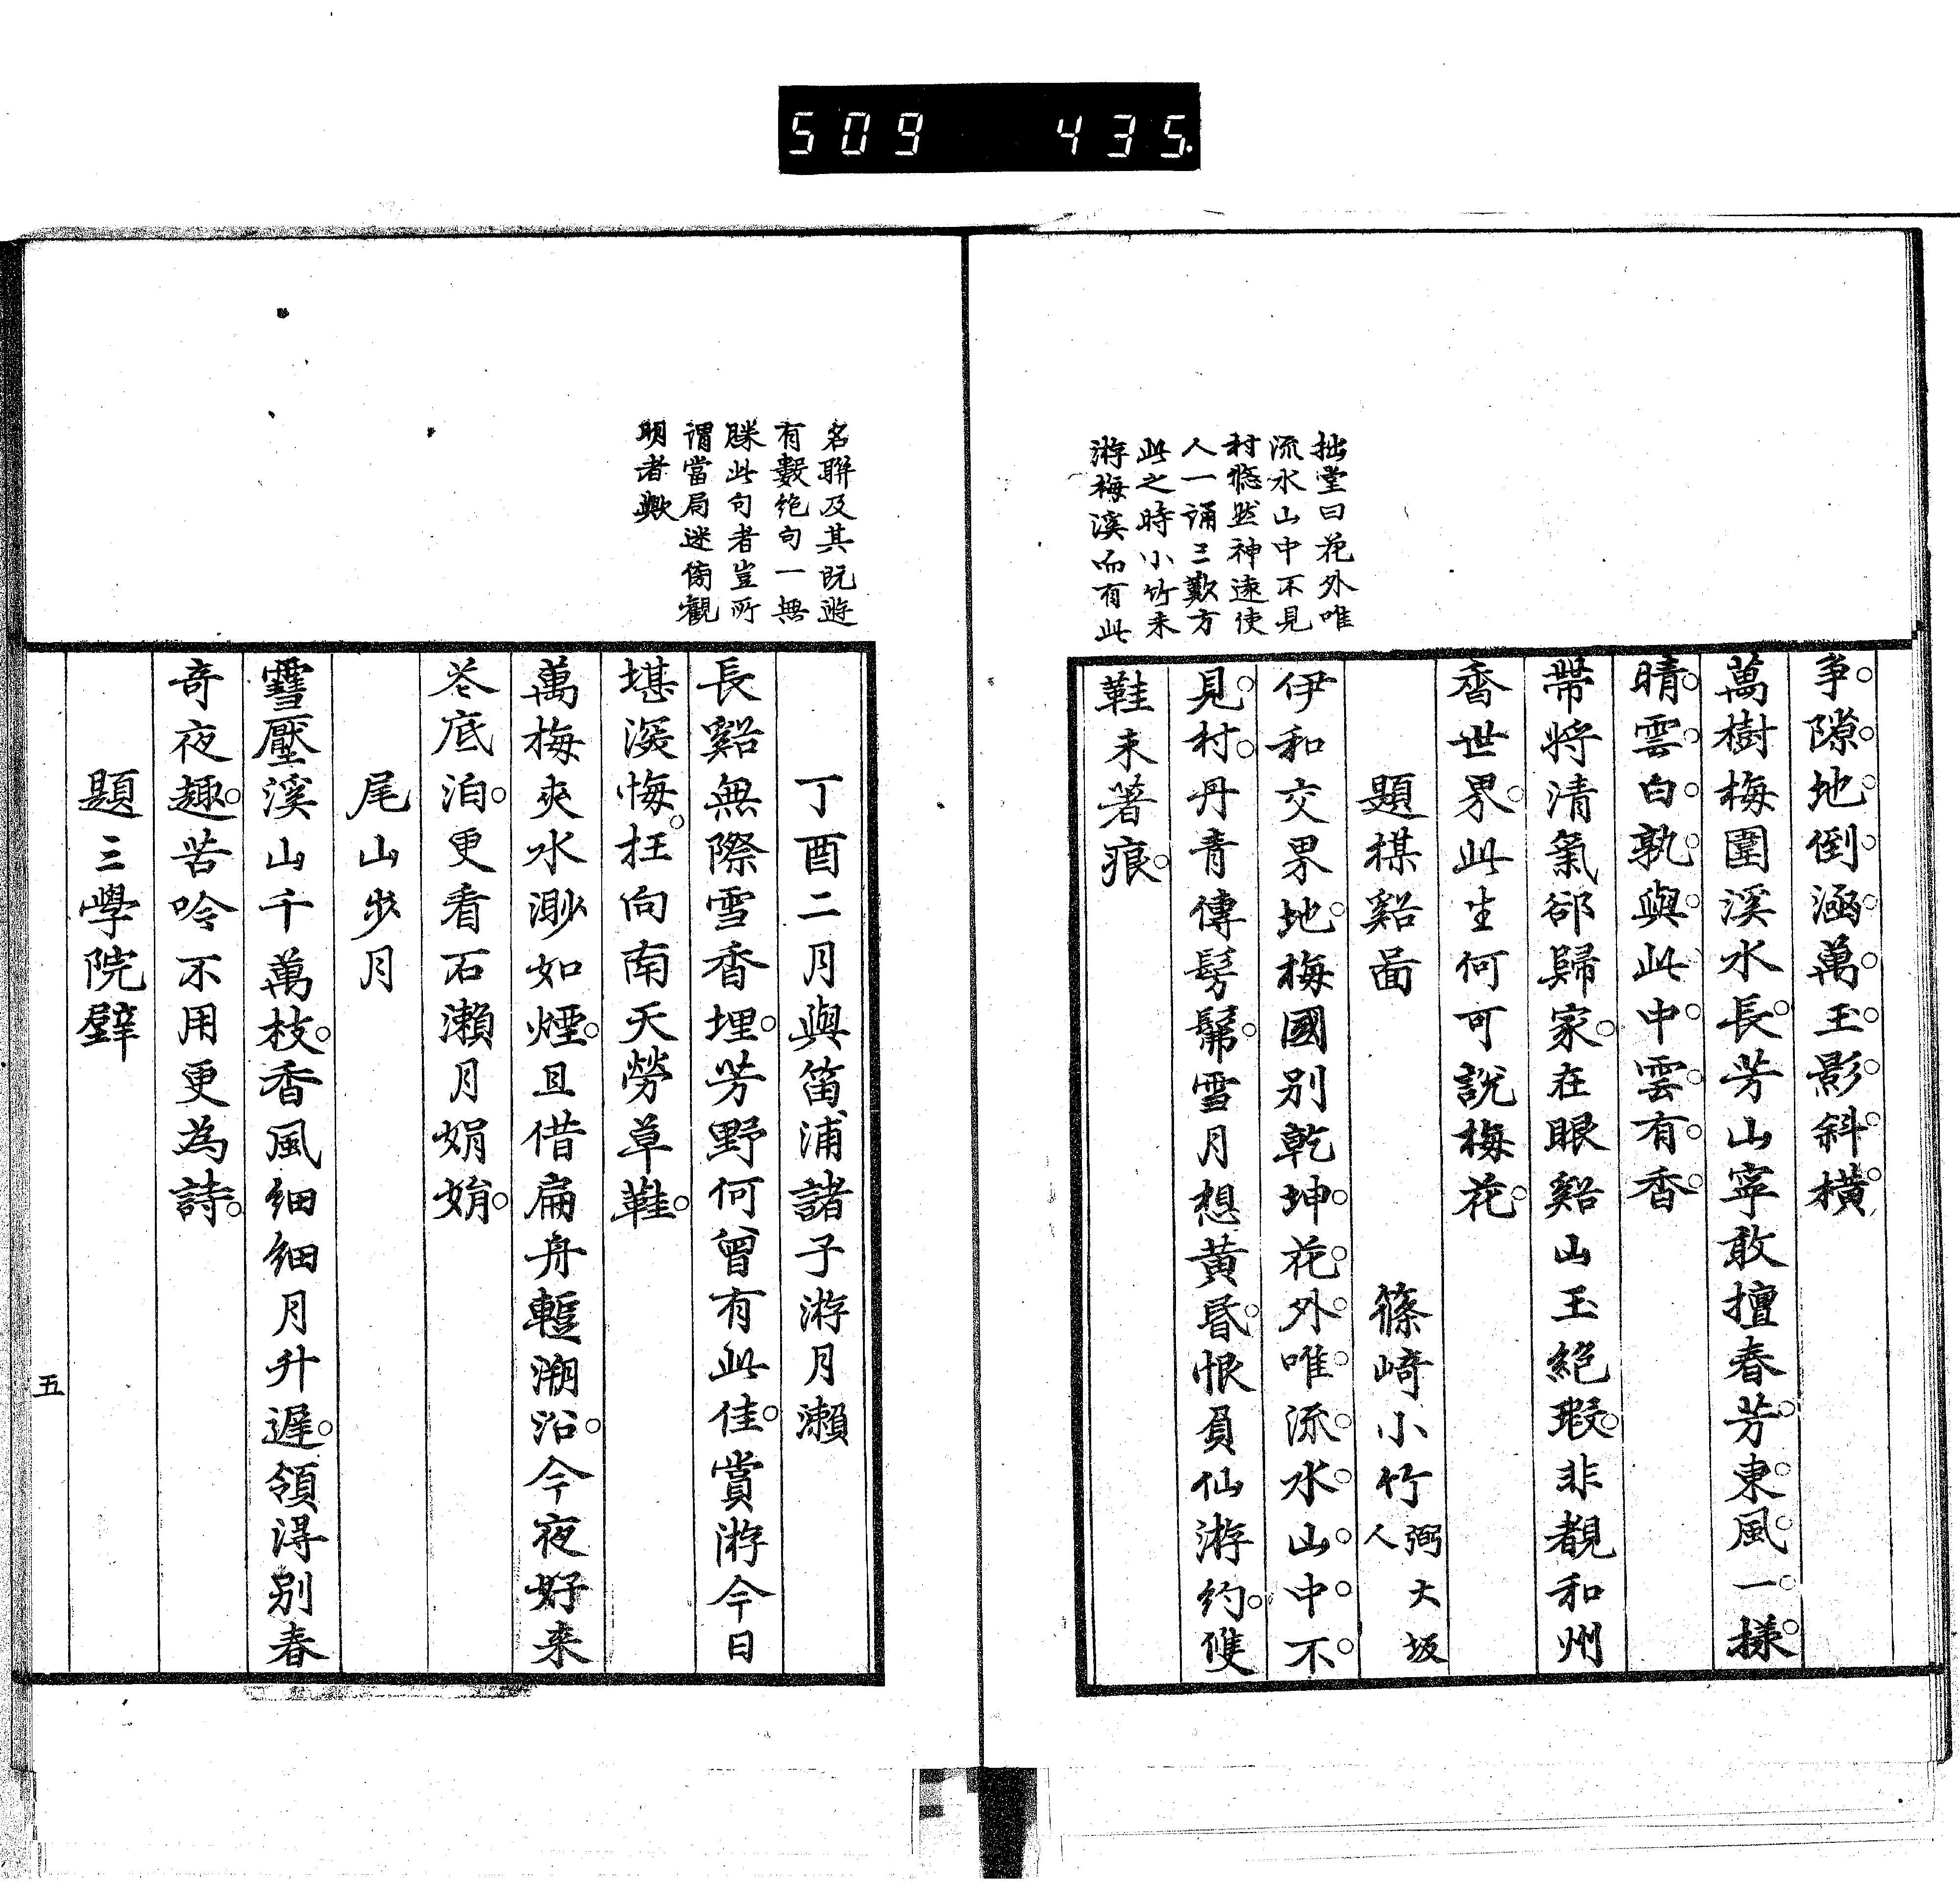 509 435
拙堂曰花外唯
流水山中不見
村悠然神遠使
人一誦三歎方
此之時小竹未
游梅溪而有此
爭隙地倒涵萬玉影斜橫
萬樹梅圍溪水長芳山寧敢擅春芳東風一樣
晴雲白孰與此中雲有香
帶將清氣郤歸家在眼谿山玉絕瑕非覩和州
香世界此生何可說梅花
題楳谿啚 篠崎小竹弼大坂人
伊和交界地梅國別乾坤花外唯流水山中不
見村丹青傳髣髴雪月想黃昏恨負仙游約雙
鞋未著痕
名聯及其既遊
有數絶句一無
勝此句者豈所
謂當局迷傍觀
明者歟
丁酉二月與笛浦諸子游月瀨
長谿無際雪香埋芳野何曾有此佳賞游今日
堪溪悔枉向南天勞草鞋
萬梅夾水渺如煙且借扁舟蹔溯沿今夜好來
花底泊更看石瀨月娟娟
尾山步月
雪壓溪山千萬枝香風細細月升遲領淂别春
奇夜趣苦吟不用更為詩
題三學院壁
五